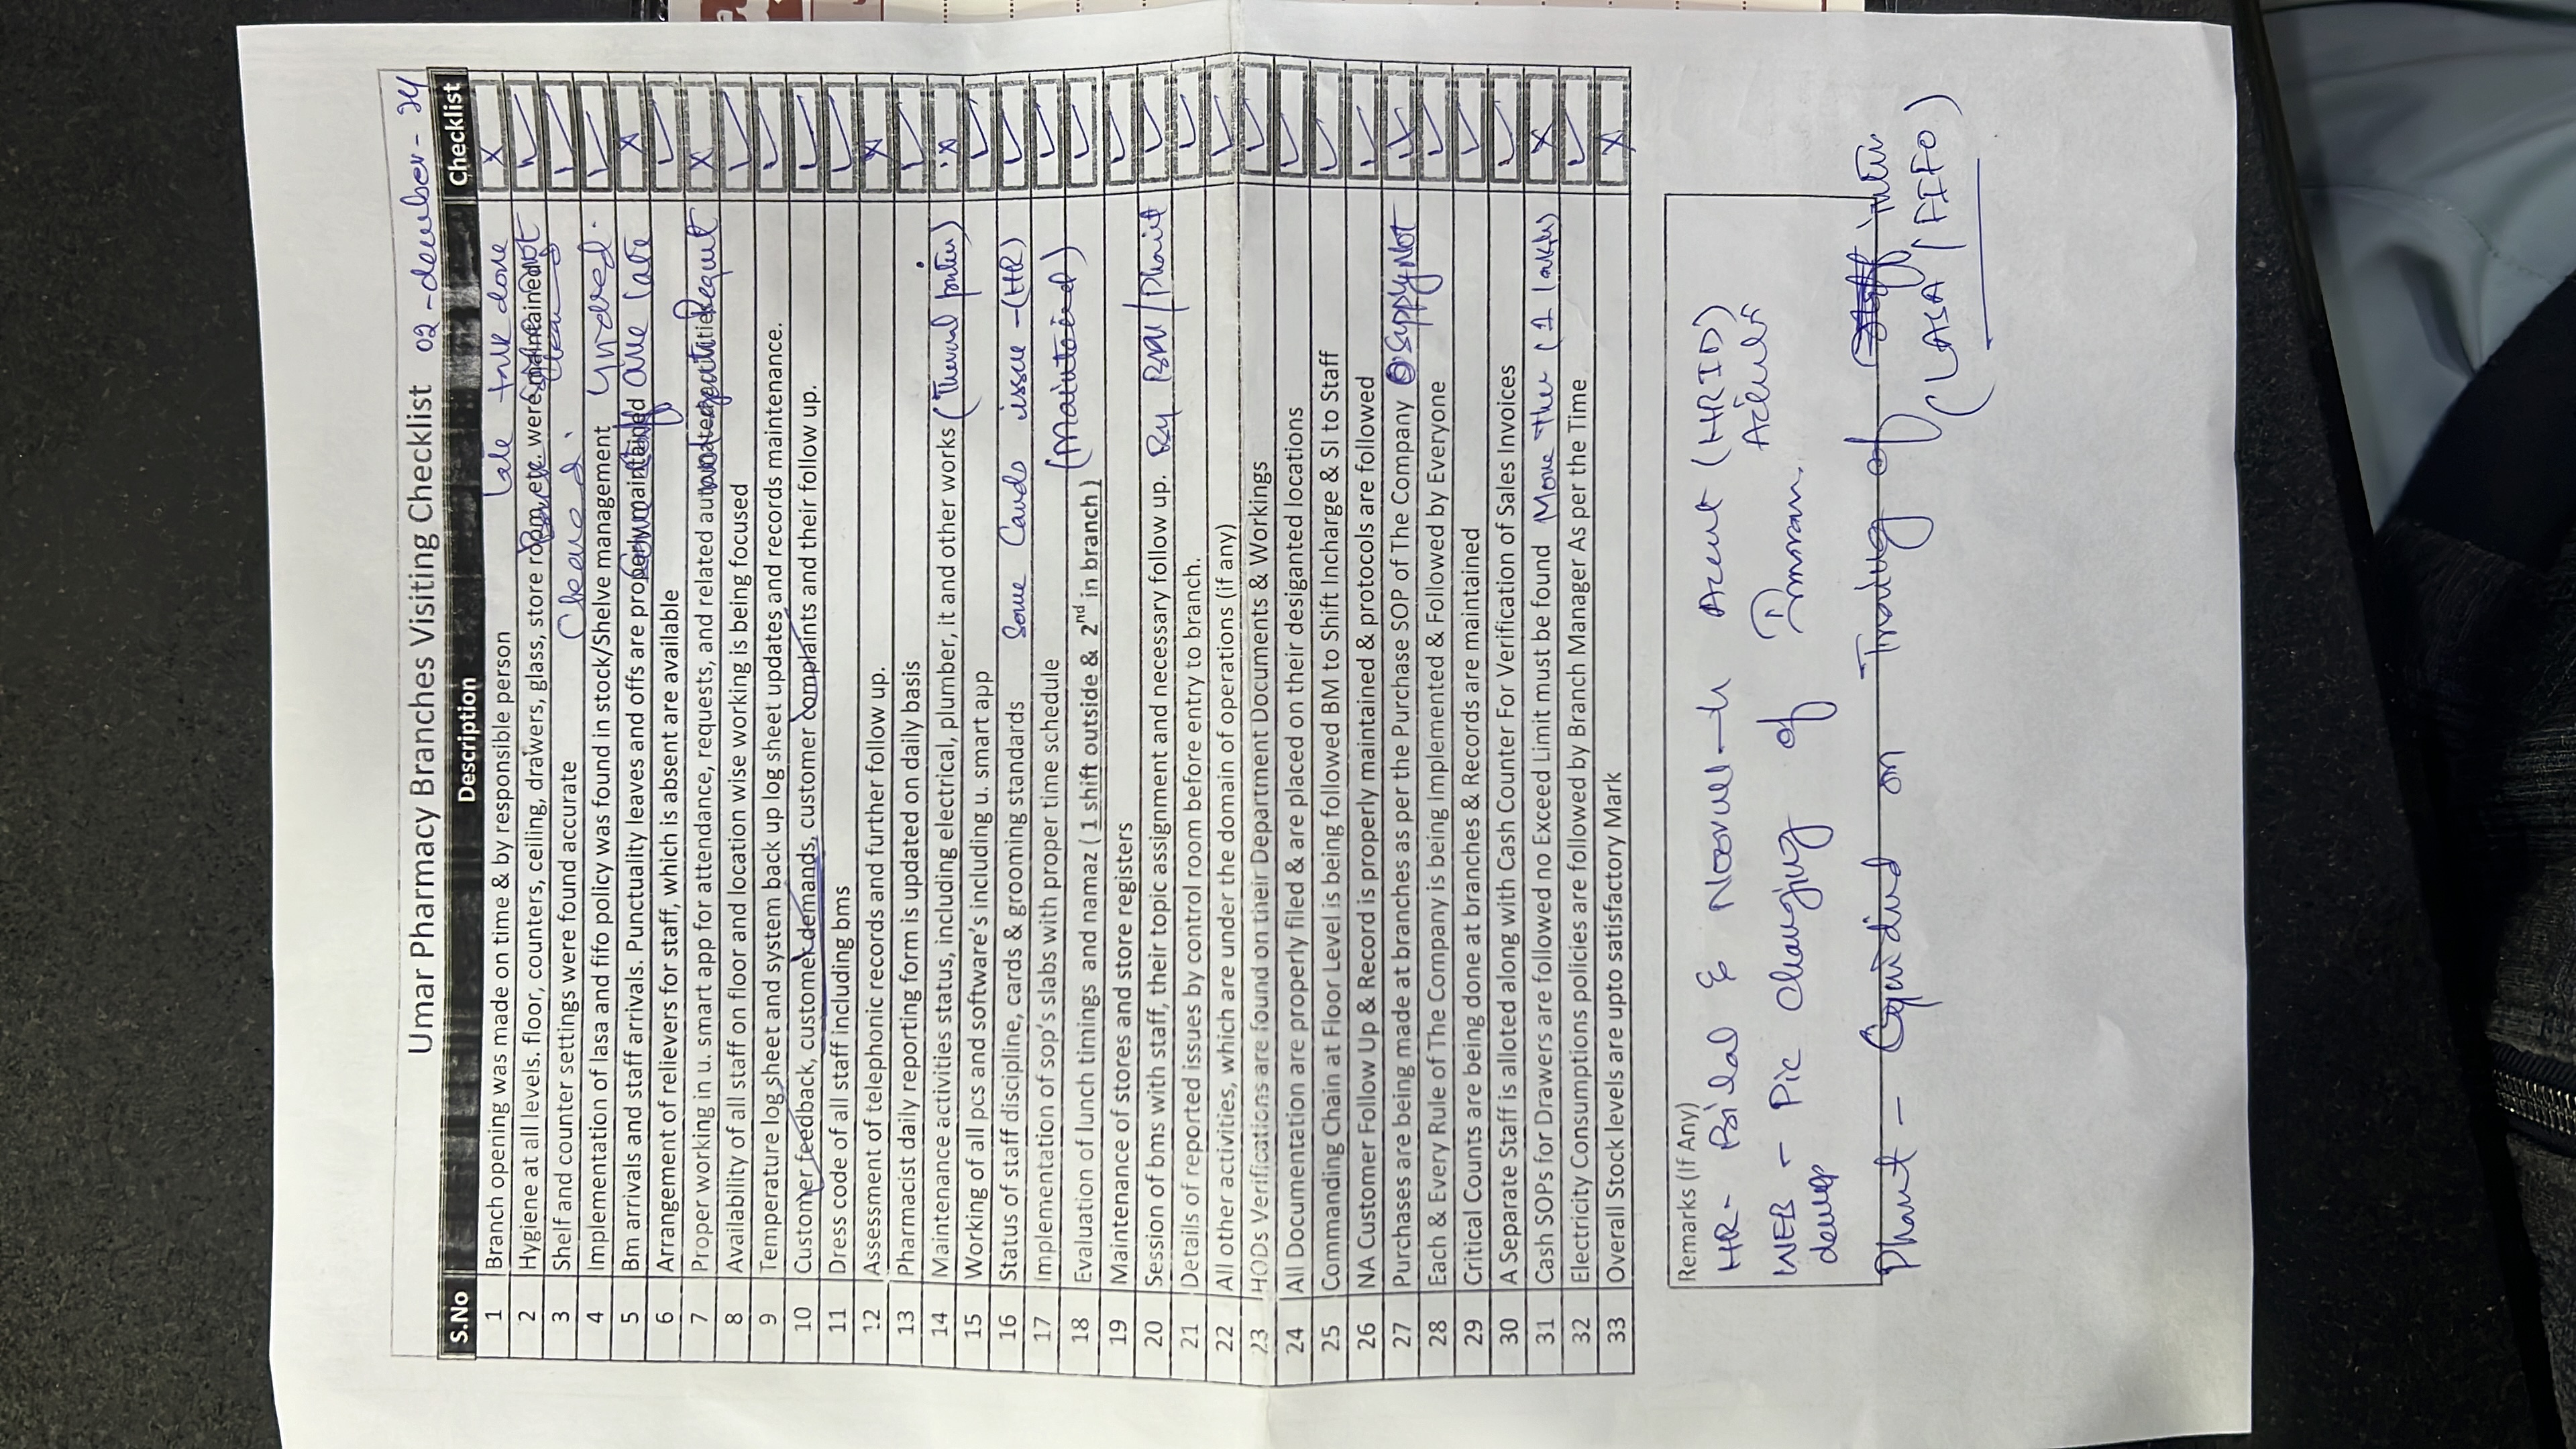 Umar Pharmacy Branches Visiting Checklist 02-december-24
S.No Description Checklist
1 Branch opening was made on time & by responsible person Late done X
2 Hygiene at all levels. floor, counters, ceiling, drawers, glass, store room, etc. were maintained not ✓
3 Shelf and counter settings were found accurate ✓
4 Implementation of lasa and fifo policy was found in stock/Shelve management ✓
5 Bm arrivals and staff arrivals. Punctuality leaves and offs are properly maintained are late X
6 Arrangement of relievers for staff, which is absent are available ✓
7 Proper working in u. smart app for attendance, requests, and related Request X
8 Availability of all staff on floor and location wise working is being focused ✓
9 Temperature log sheet and system back up log sheet updates and records maintenance. ✓
10 Customer feedback, customer demands, customer complaints and their follow up. ✓
11 Dress code of all staff including bms ✓
12 Assessment of telephonic records and further follow up. X
13 Pharmacist daily reporting form is updated on daily basis ✓
14 Maintenance activities status, including electrical, plumber, it and other works (Thermal printer) X
15 Working of all pcs and software's including u. smart app ✓
16 Status of staff discipline, cards & grooming standards Some Cards issue -(HR) ✓
17 Implementation of sop's slabs with proper time schedule ✓
18 Evaluation of lunch timings and namaz ( 1 shift outside & 2nd in branch ) (Maintained) ✓
19 Maintenance of stores and store registers ✓
20 Session of bms with staff, their topic assignment and necessary follow up. By BM / Pharmt ✓
21 Details of reported issues by control room before entry to branch. ✓
22 All other activities, which are under the domain of operations (if any) ✓
23 HODs Verifications are found on their Department Documents & Workings ✓
24 All Documentation are properly filed & are placed on their desiganted locations ✓
25 Commanding Chain at Floor Level is being followed BM to Shift Incharge & SI to Staff ✓
26 NA Customer Follow Up & Record is properly maintained & protocols are followed ✓
27 Purchases are being made at branches as per the Purchase SOP of The Company Supply Not ✓
28 Each & Every Rule of The Company is being Implemented & Followed by Everyone ✓
29 Critical Counts are being done at branches & Records are maintained ✓
30 A Separate Staff is alloted along with Cash Counter For Verification of Sales Invoices ✓
31 Cash SOPs for Drawers are followed no Exceed Limit must be found More then (1 lakh) X
32 Electricity Consumptions policies are followed by Branch Manager As per the Time ✓
33 Overall Stock levels are upto satisfactory Mark X
Remarks (If Any)
HR- Bilal & (HRID)
WEB - Pic changing of Imran.
Pharmt - on of
(LASA / FIFO)